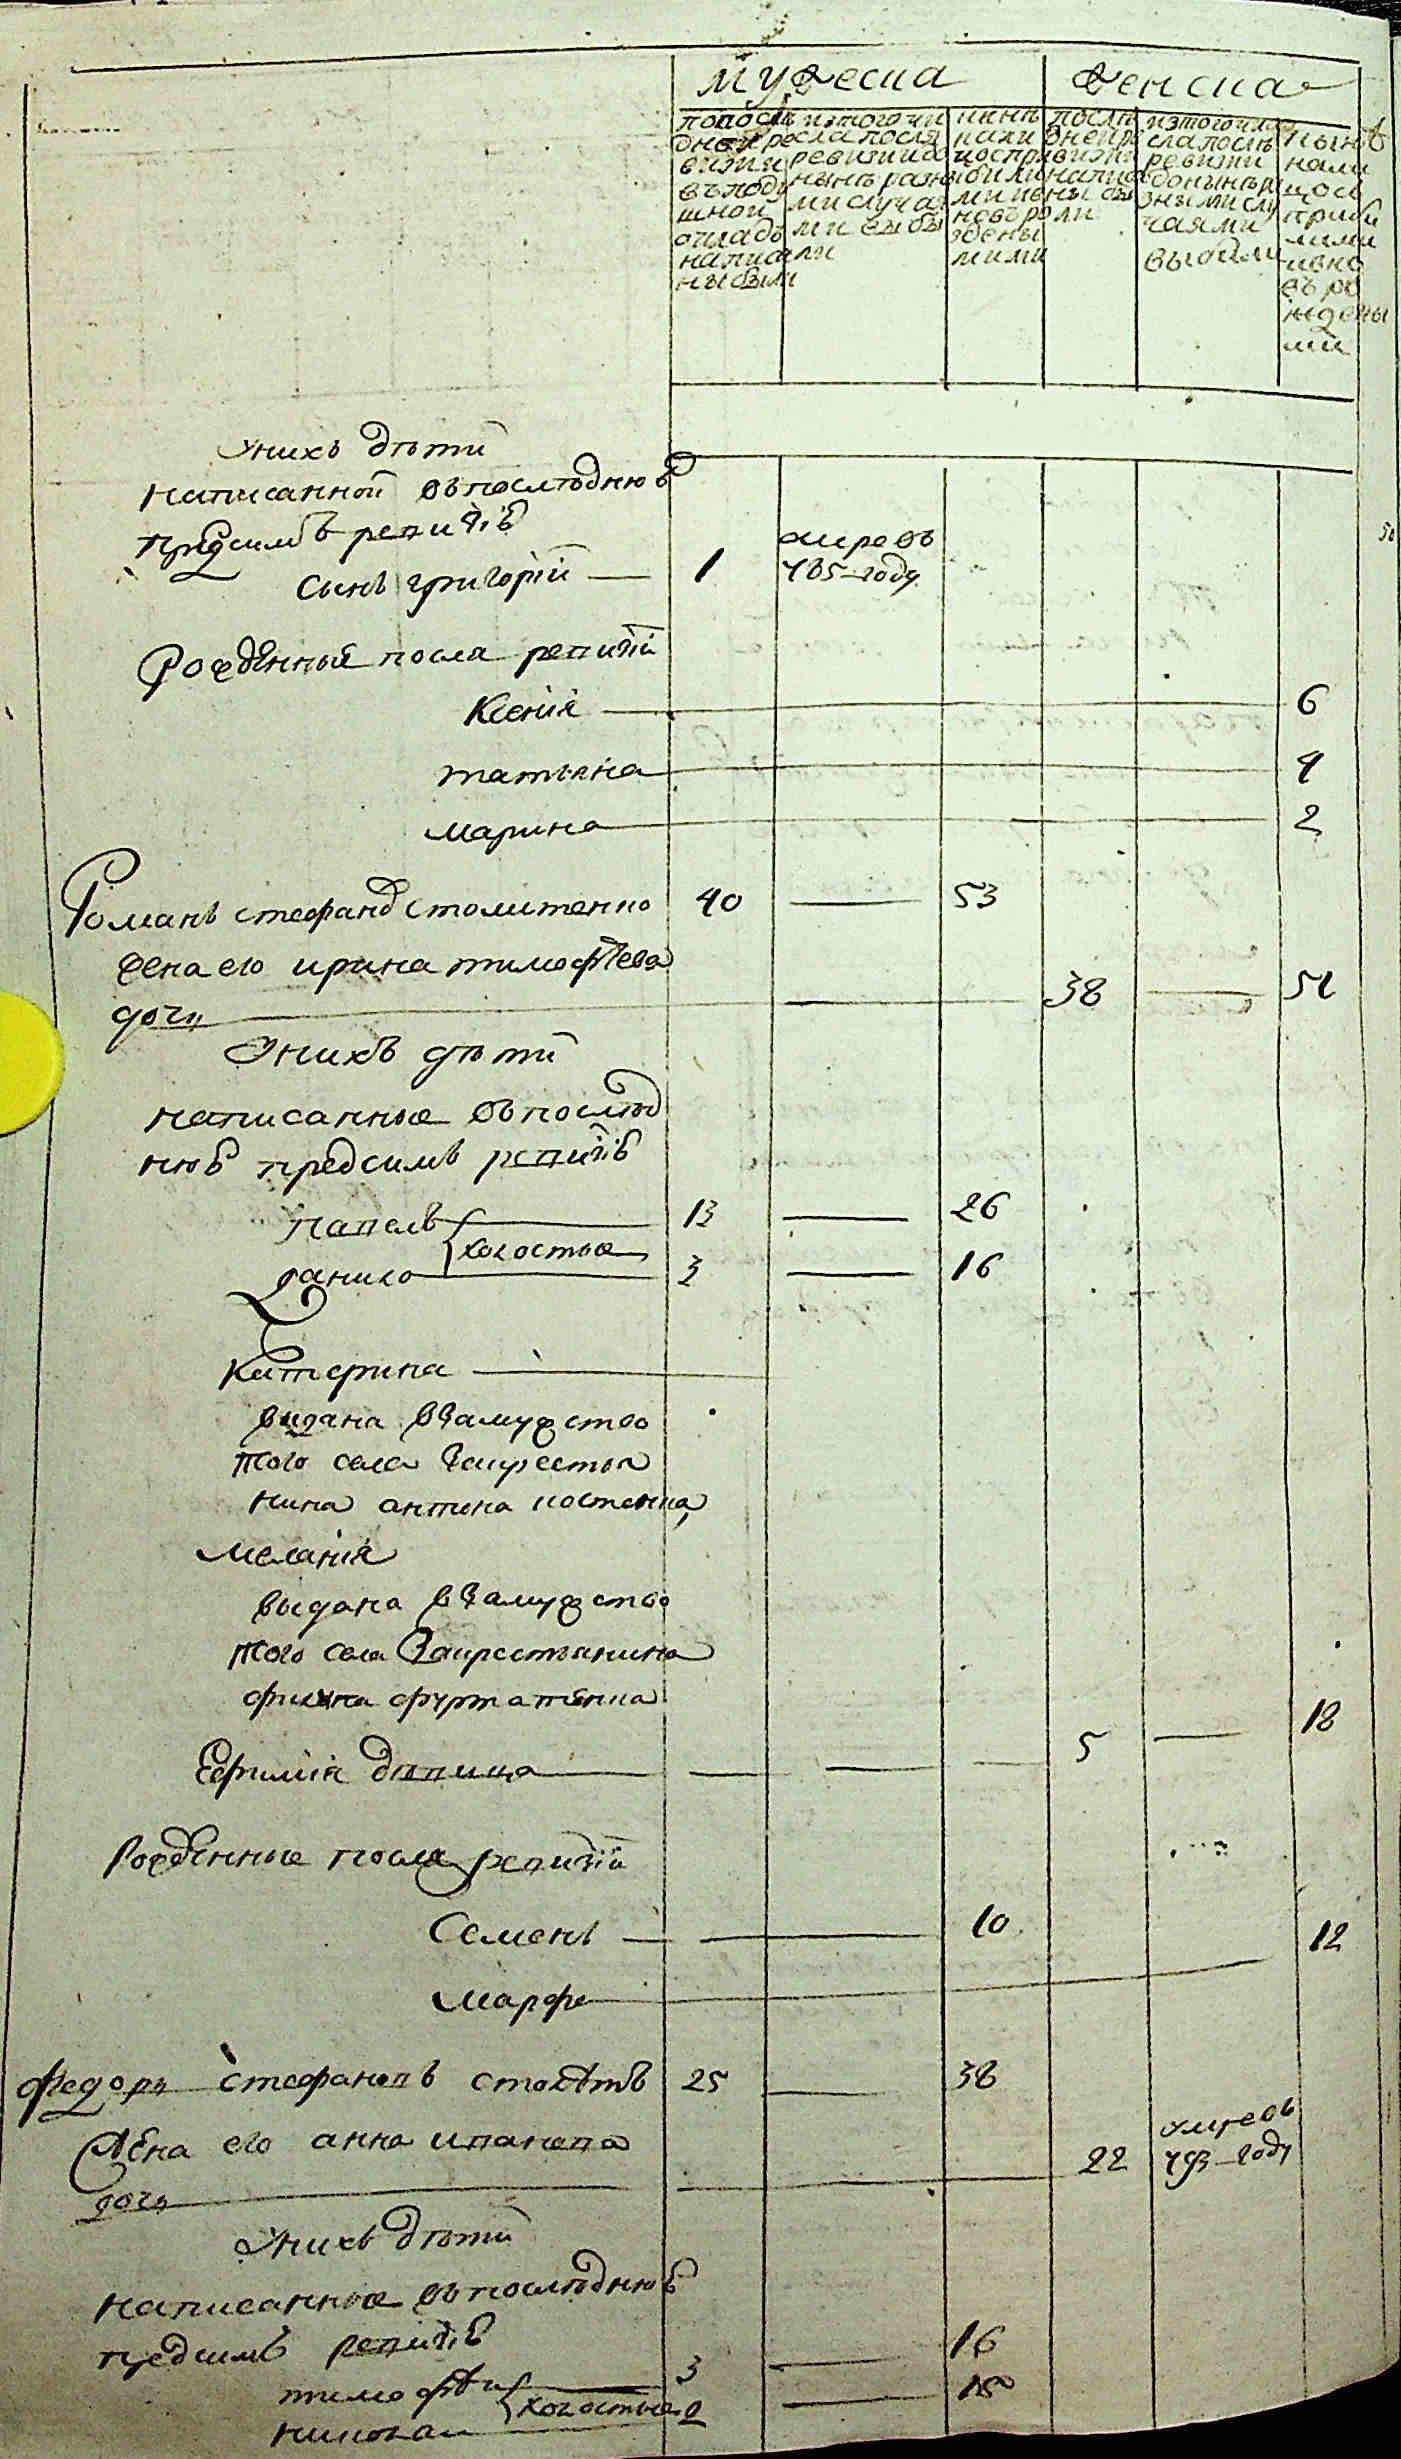 мужеска
женска
по последней ревизии въ подушной окладъ написаны были
изтого числа после ревизии до нынъ разными случаями выбыли
нынъ налицо с прибылими и вновь рожденными
последней ревизии написаны были
изтого числа послъ ревизии до нынъ разными случаями выбыли
нынъ налицо с прибылими и вновь рождеными
Унихъ дъти
написанной въ последнюю
предсимъ ревизію
сынъ григорій — 1
умре въ
785 году
Рожденные после ревизіи
Ксенія — 6
татьяна — 4
марина — 2
Романъ стефановъ столитенко 40 — 53
жена его ирина тимофеева
дочь — 38 — 51
Унихъ дъти
написанные въ послед
нюю предсимъ ревизію
павелъ 13 — 26
холостые
данило 3 — 16
катерина —
видана взамужство
того села закрестья
нина антина костенка
меланія
выдана взамужство
того села закрестьянина
Ефимія дъвица — 5 — 18
Рожденные после ревизіи
Семенъ — 10
марфа — 12
федоръ стефановъ 25 — 38
Жена его анна иванова
дочь — 22
умре въ
793 году
Унихъ дъти
написанные въ последнюю
предсимъ ревизію
тимофъи 3 — 16
холостые
николаи 2 — 15